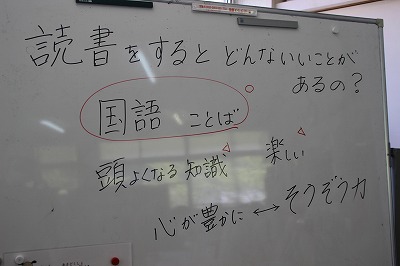 読書をするとどんないいことが
あるの?
国語 ことば
頭よくなる 知識 楽しい
心が豊かに ↔ そうぞう力